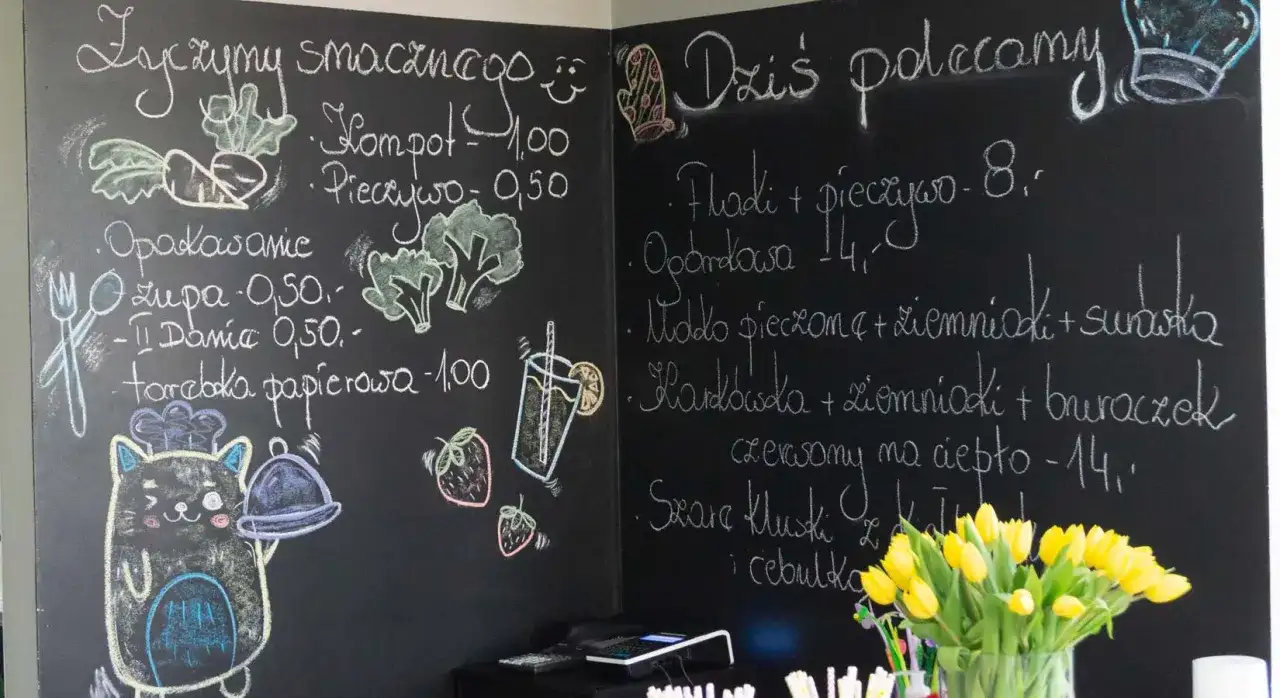 Życzymy smacznego
· Kompot - 1.00
· Pieczywo - 0,50
· Opakowanie
- zupa - 0,50.-
- II Danie 0,50.-
- torebka papierowa - 1,00
Dziś polecamy
· Flaki + pieczywo - 8,-
· Ogórkowa - 4,-
· Udko pieczone + ziemniaki + surówka
· Karkówka + ziemniaki + buraczek
czerwony na ciepło - 14,-
· Szare kluski z
i cebulką